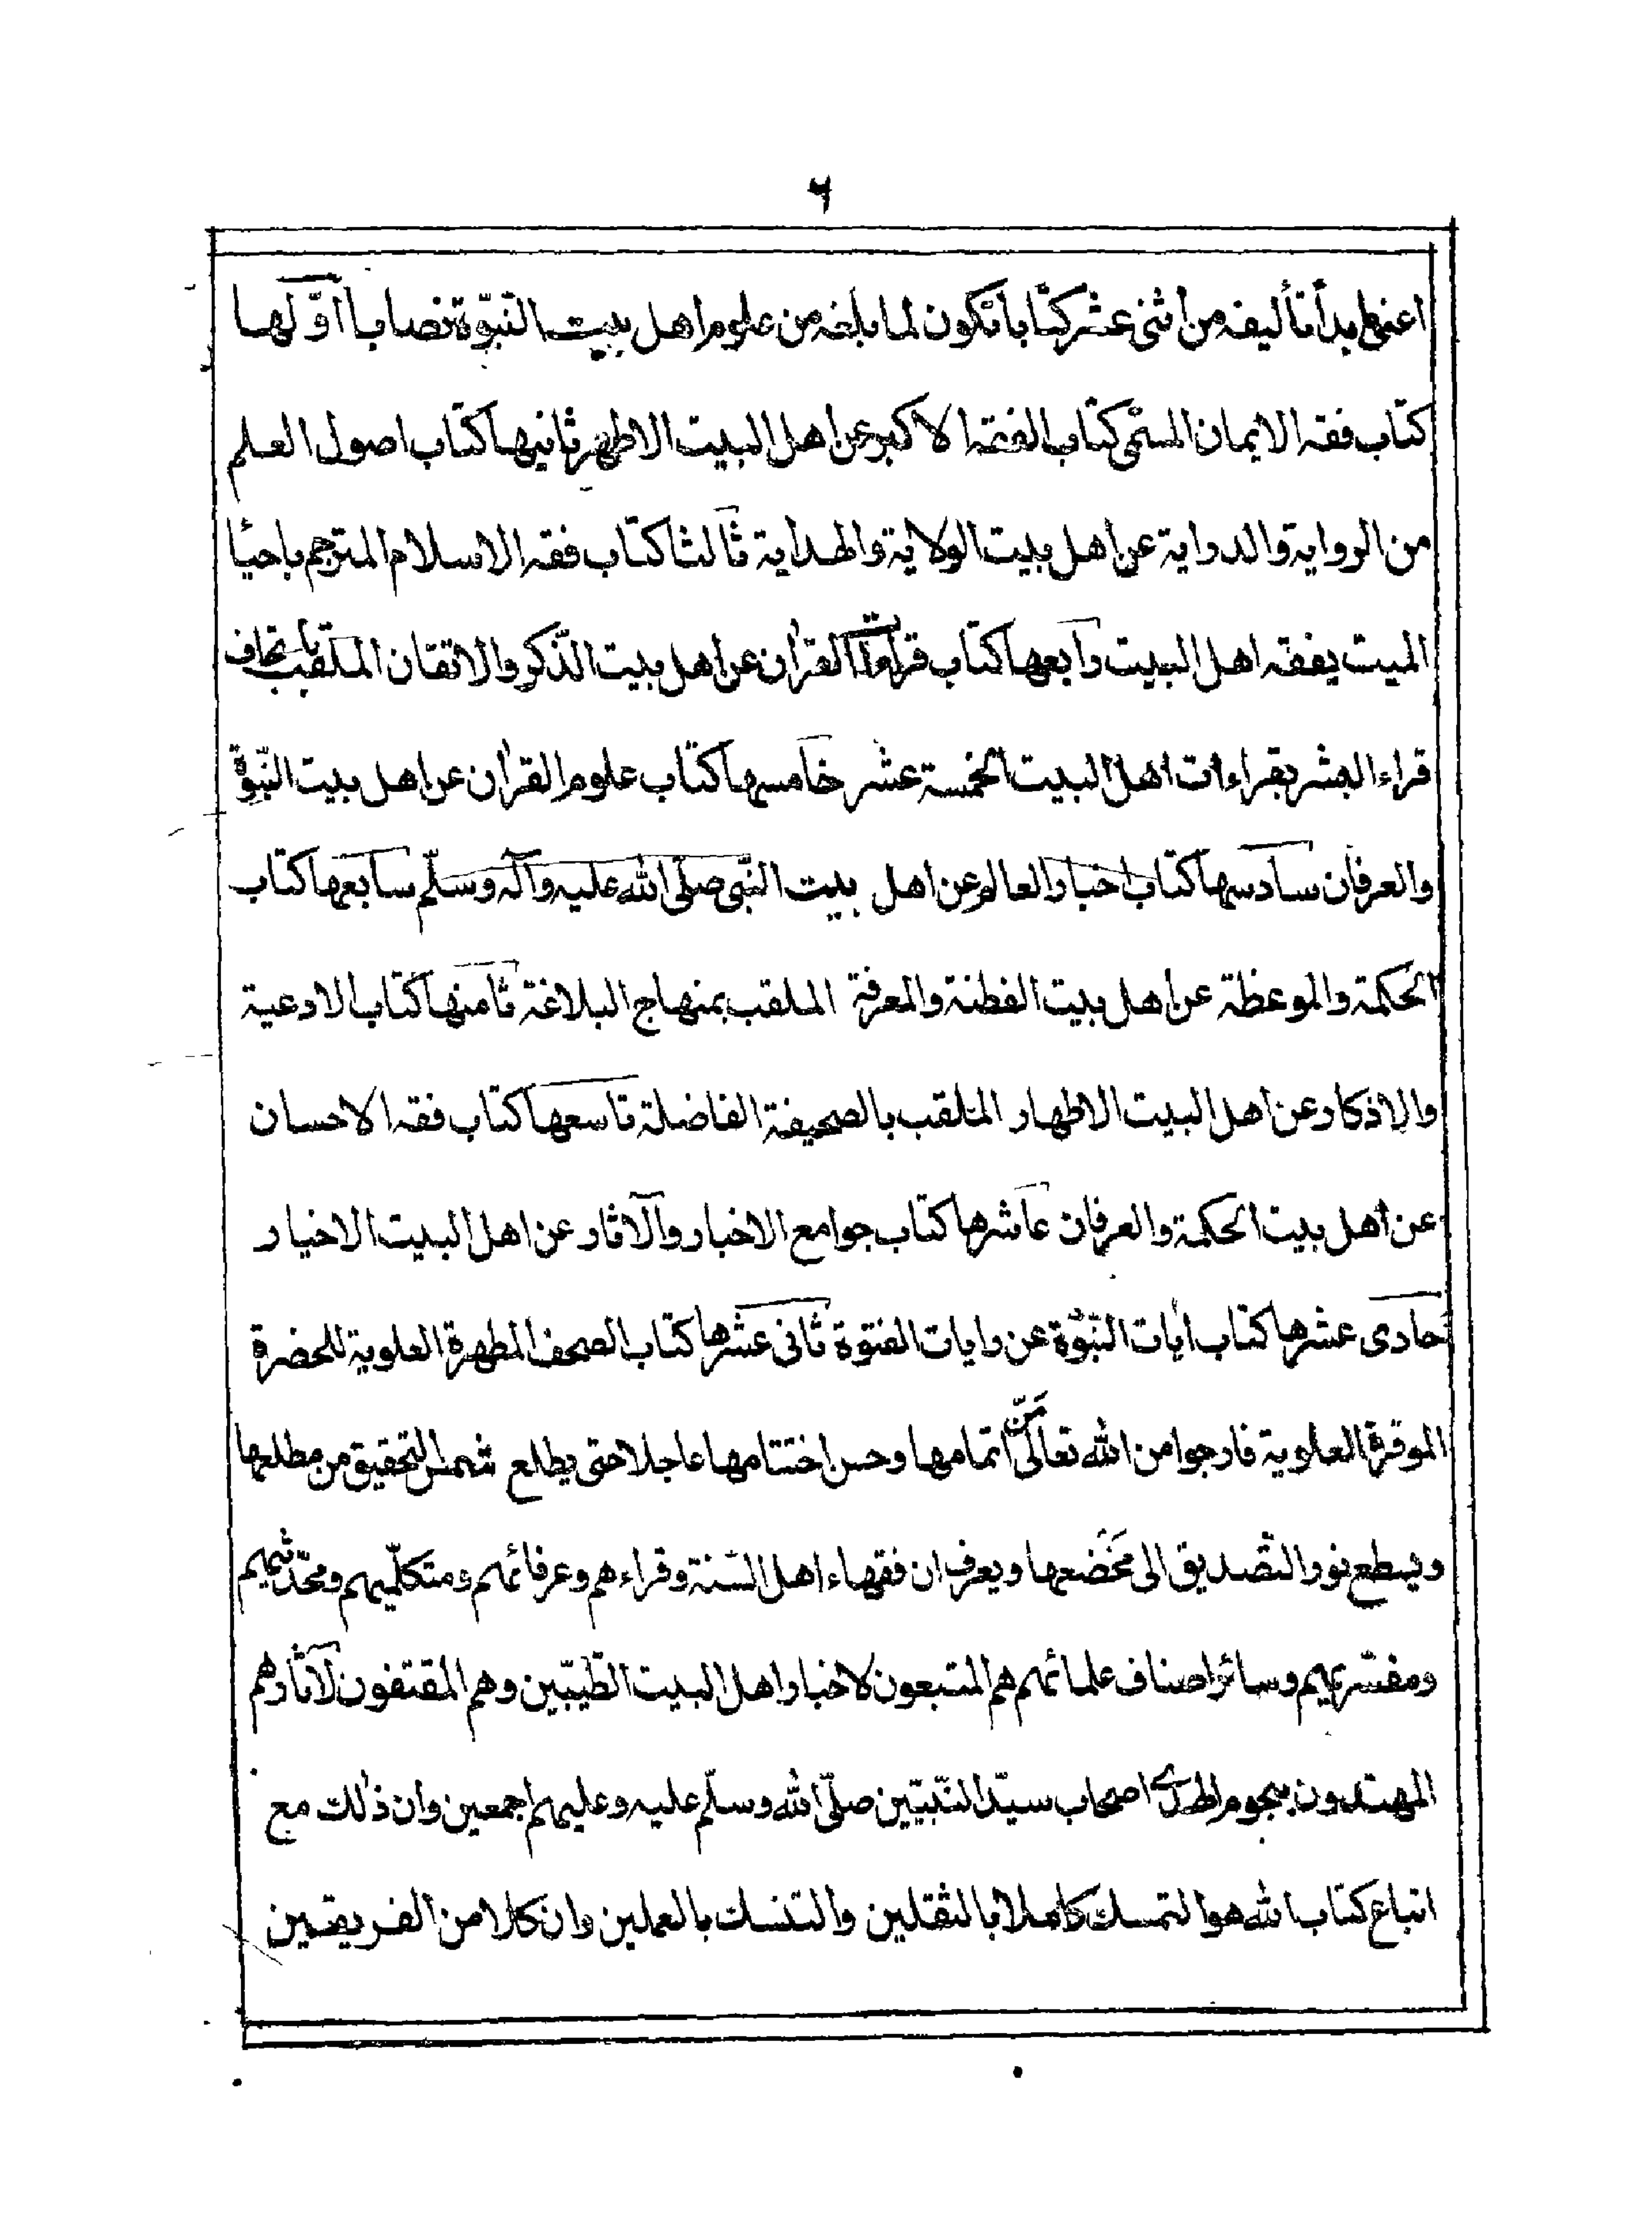 ٦
اعنى بدأ تأليفه من اثنى عشر كتابا تكون لما بلغه من علوم اهل بيت النبّوة نصابا اوّلها
كتاب فقه الايمان المسمّى كتاب الفقه الاكبر عن اهل البيت الاطهر ثانيها كتاب اصول العلم
من الرواية والدراية عن اهل بيت الولاية والهداية ثالثا كتاب فقه الاسلام المترجم باحيا
الميت بفقه اهل البيت رابعها كتاب قراءات القرأن عن اهل بيت الذّكر والاتقان الملقب باتحاف
قراء البشر بقراءات اهل البيت الخمسة عشر خامسها كتاب علوم القرأن عن اهل بيت النبّوة
والعرفان سادسها كتاب اخبار العالم عن اهل بيت النّبى صلّى الله عليه وآله وسلّم سابعها كتاب
الحكمة والموعظة عن اهل بيت الفطنة والمعرفة الملقب بمنهاج البلاغة ثامنها كتاب الادعية
والاذكار عن اهل البيت الاطهار الملقب بالصحيفة الفاضلة تاسعها كتاب فقه الاحسان
عن اهل بيت الحكمة والعرفان عاشرها كتاب جوامع الاخبار والآثار عن اهل البيت الاخيار
حادى عشرها كتاب أيات النبّوّة عن رايات الفتوة ثانى عشرها كتاب الصحف المطهرة العلوية للحضرة
الموقرة العلوية فارجوا من الله تعالى مَنّ اتمامها وحسن اختتامها عاجلا حتى يطلع شمس التحقيق من مطلعها
ويسطع نور التصديق الى مخضعها ويعرف ان فقهاء اهل السّنة وقراءهم وعرفائهم ومتكلّميهم ومحدّثيهم
ومفسّريهم وسائر اصناف علمائهم هم المتبعون لاخبار اهل البيت الطّيبّين وهم المقتفون لآثارهم
المهتدون بنجوم الهدى اصحاب سيّد النّبيّين صلّى الله وسلّم عليه وعليهم اجمعين وان ذلك مع
اتباع كتاب الله هو التمسك كاملا بالثقلين والتنسك بالعملين وان كلا من الفريقين